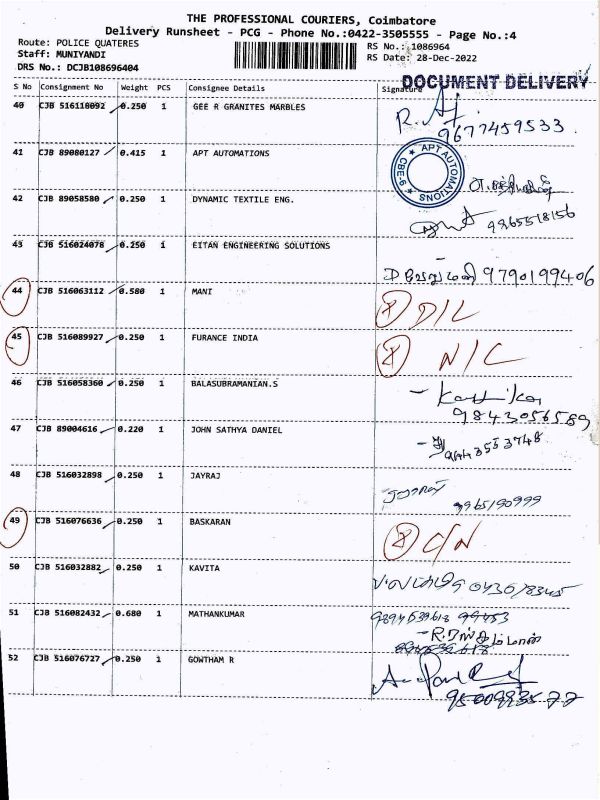 THE PROFESSIONAL COURIERS, Coimbatore
Delivery Runsheet - PCG - Phone No.:0422-3505555 - Page No.:4
Route: POLICE QUATERES RS No.: 1086964
Staff: MUNIYANDI RS Date: 28-Dec-2022
DRS No.: DCJB108696404
DOCUMENT DELIVERY
S No Consignment No Weight PCS Consignee Details Signature
40 CJB 516110092 0.250 1 GEE R GRANITES MARBLES
9677459533
41 CJB 89080127 0.415 1 APT AUTOMATIONS
APT AUTOMATIONS CBE-9
42 CJB 89058580 0.250 1 DYNAMIC TEXTILE ENG.
9865518156
43 CJB 516024078 0.250 1 EITAN ENGINEERING SOLUTIONS
9790199406
44 CJB 516063112 0.580 1 MANI
D/L
45 CJB 516089927 0.250 1 FURANCE INDIA
N/C
46 CJB 516058360 0.250 1 BALASUBRAMANIAN.S
9843056589
47 CJB 89004616 0.220 1 JOHN SATHYA DANIEL
48 CJB 516032898 0.250 1 JAYRAJ
9965190999
49 CJB 516076636 0.250 1 BASKARAN
C/N
50 CJB 516032882 0.250 1 KAVITA
51 CJB 516082432 0.680 1 MATHANKUMAR
52 CJB 516076727 0.250 1 GOWTHAM R